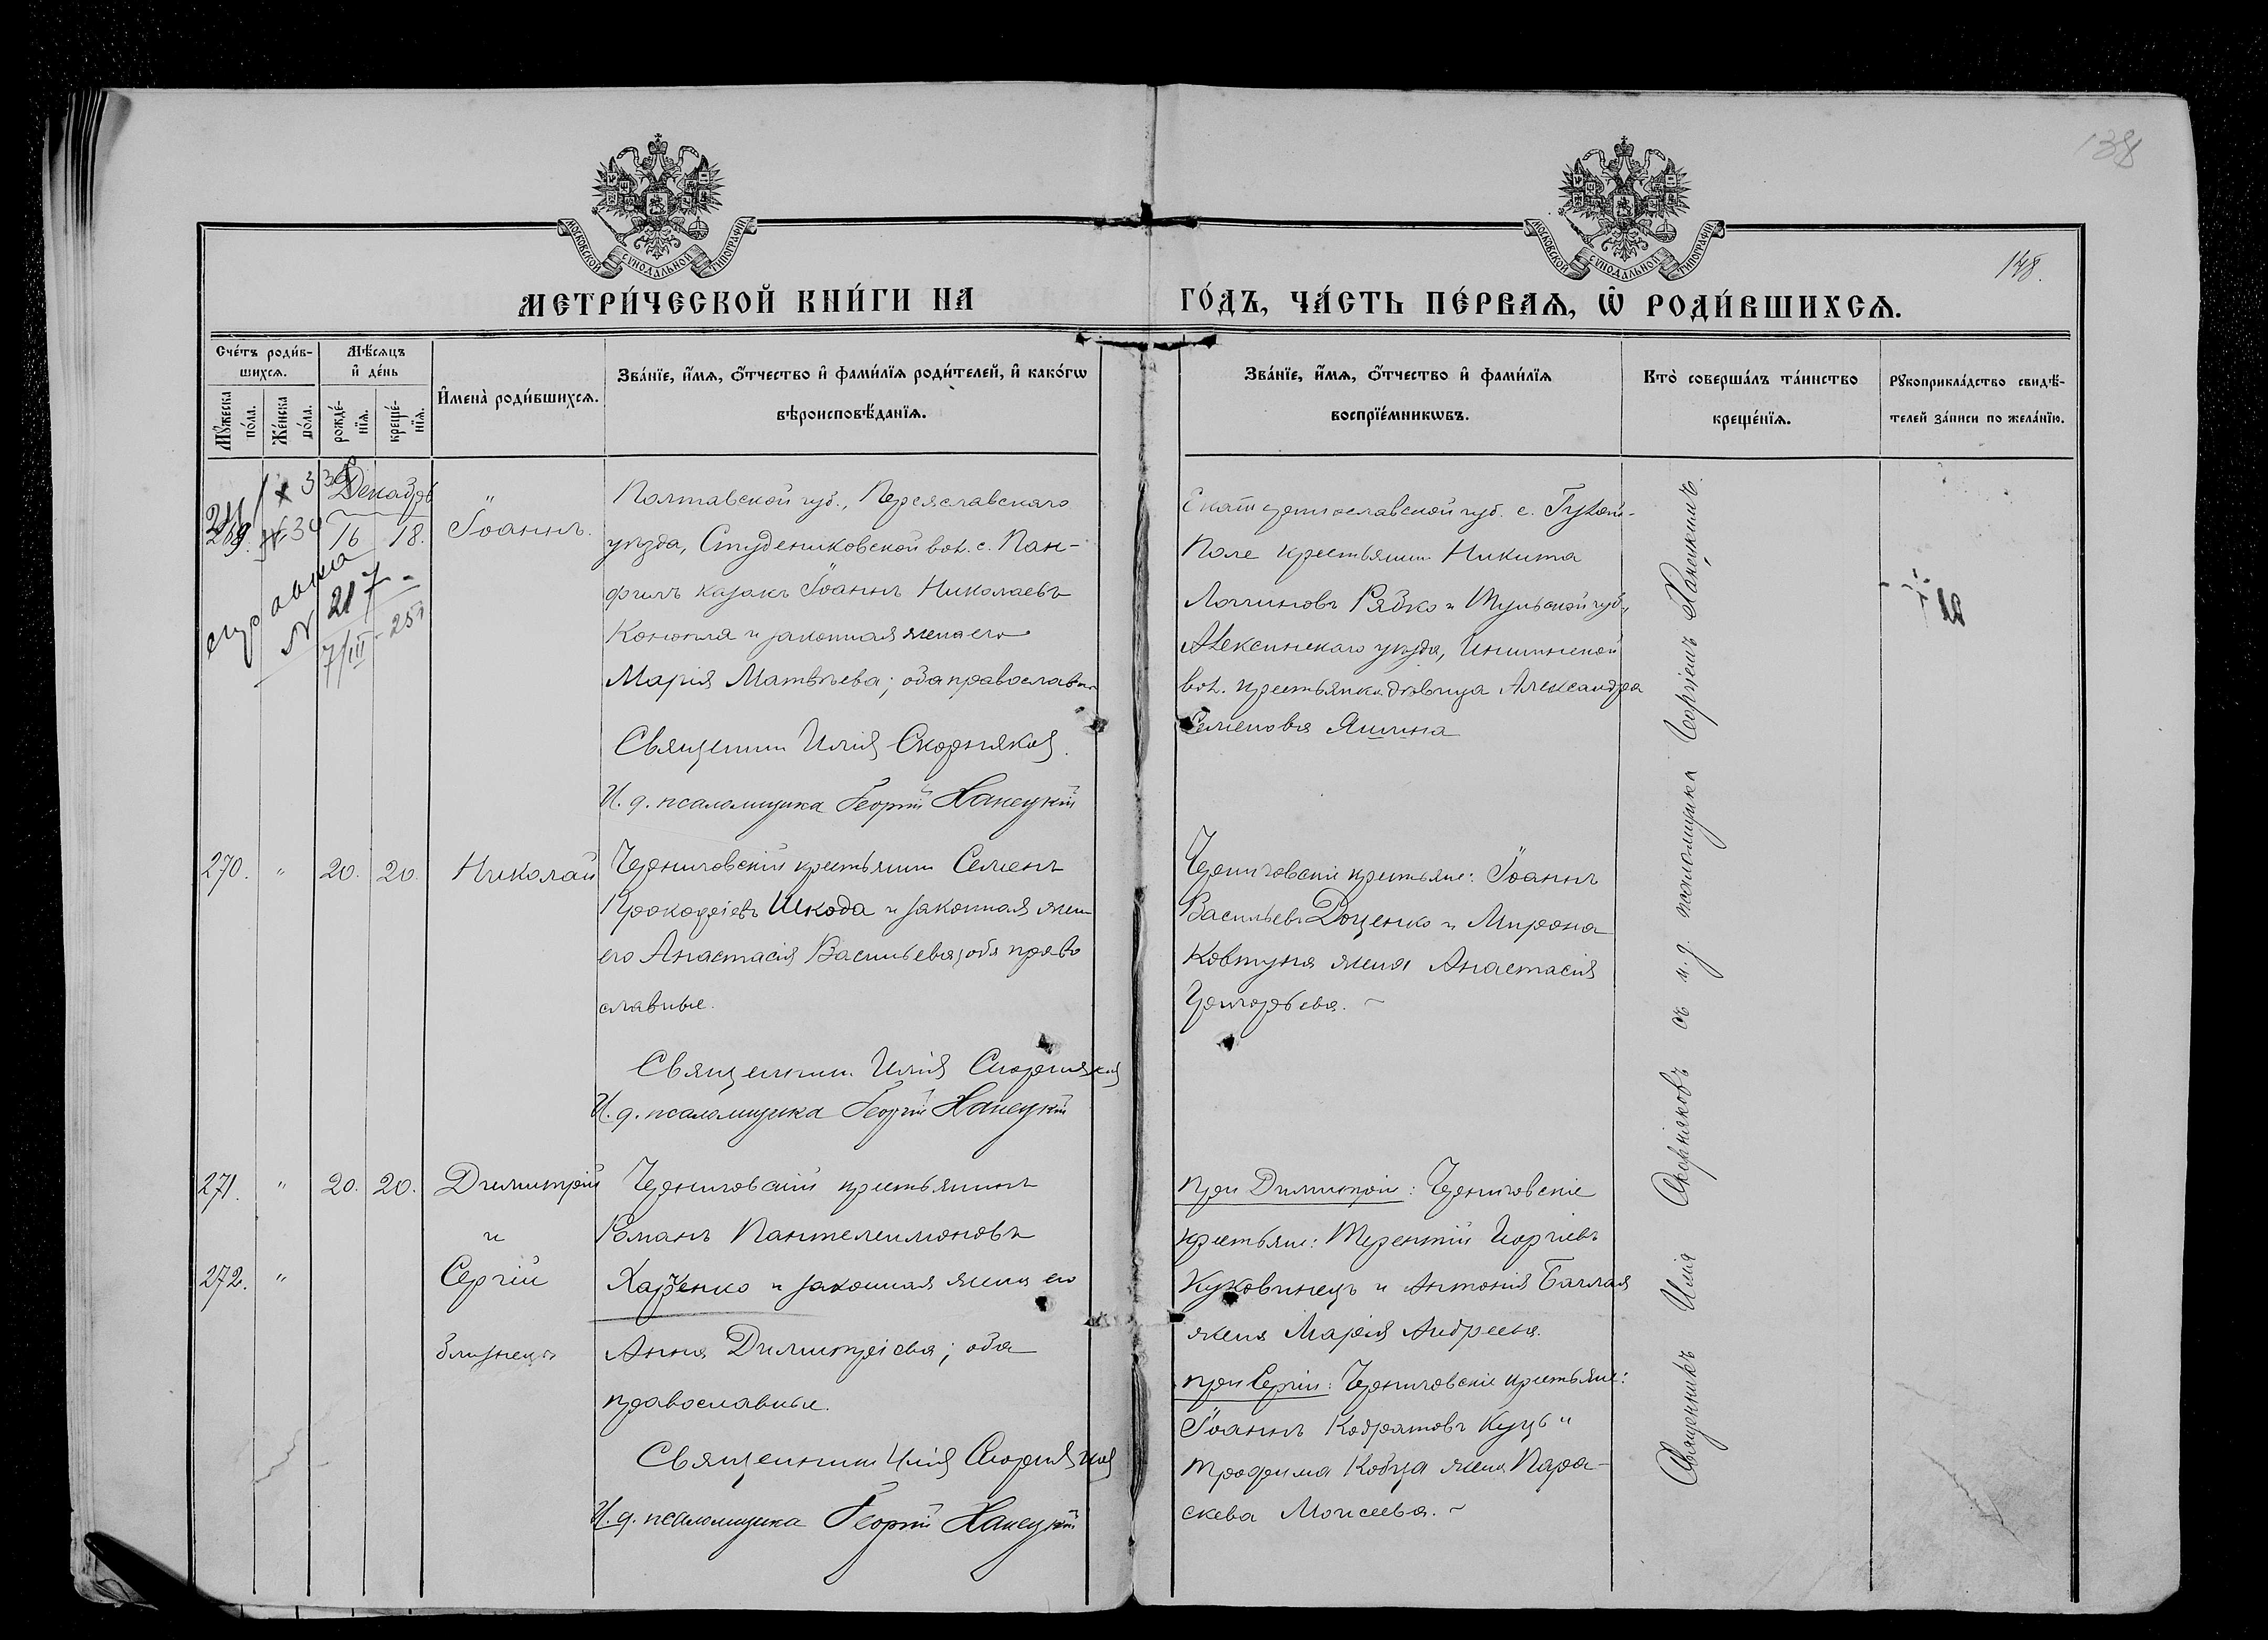 138
148.
МОСКОВСКОЙ СѴНОДАЛЬНОЙ ТИПОГРАФІИ
МОСКОВСКОЙ СѴНОДАЛЬНОЙ ТИПОГРАФІИ
МЕТРИ́ЧЕСКОЙ КНИ́ГИ НА
ГО́ДЪ, ЧА́СТЬ ПЕ́РВАѦ, Ѡ РОДИ́ВШИХСѦ.
Сче́тъ роди́в-
шихсѧ.
Мꙋжеска
по́ла.
Же́нска
по́ла.
Мѣ́сѧцъ
и де́нь
рожде́-
нїѧ.
креще́-
нїѧ.
И҆мена̀ роди́вшихсѧ.
Зва́нїе, и҆́мѧ, ѻ҆́тчество и҆ фами́лїѧ роди́телей, и҆ како́гѡ
вѣроисповѣ́данїѧ.
Зва́нїе, и҆́мѧ, ѻ҆́тчество и҆ фами́лїѧ
воспрїе́мникѡвъ.
Кто̀ соверша́лъ та́инство
креще́нїѧ.
Рꙋкоприкла́дство свидѣ́-
телей за́писи по жела́нїю.
Декабрь
269. 16 18. Іоаннъ.
справка
N 217
7/III - 25
Полтавской губ., Переяславскаго
уѣзда, Студениковской вол. с. Пан-
филъ казакъ Іоаннъ Николаевъ
Конюшла и законная жена его
Марія Матвѣева; оба православн
Священник Илія Скорняков.
И. д. псаломщика Георгій Ханецкій
Екатеринославской губ. с. Гуляй-
Поле крестьянин Никита
Логиновъ Рябко и Тульской губ.,
Алексинскаго уѣзда,
вол. крестьянка девица Александра
Семенова Яшина
270. " 20. 20. Николай
Черниговскій крестьянин Семенъ
Прокофіевъ Шкода и законная жена
его Анастасія Васильева; оба право
славные.
Священник Илія Скорняков
И. д. псаломщика Георгій Ханецкій
Черниговскіе крестьяне: Іоаннъ
Васильев Доценко и Мирона
Ковтуна жена Анастасія
Григорьева. ~
271. " 20. 20. Димитрій
и
272. " Сергій
близнецы
Черниговскій крестьянинъ
Романъ Пантелеимоновъ
Харченко и законная жена его
Анна Димитріева; оба
православные.
Священник Илія Скорняков
И. д. псаломщика Георгій Ханецкій
при Димитріи: Черниговскіе
крестьяне: Терентій Георгіевъ
Куковинецъ и Антонія Баглая
жена Марія Андреева.
при Сергіи: Черниговскіе крестьяне:
Іоаннъ Кодратовъ Куцъ и
Трофима Кобца жена Пара-
скева Моисеева. ~
Священникъ Илія Скорняковъ съ и. д. псаломщика Георгіемъ Ханецкимъ.